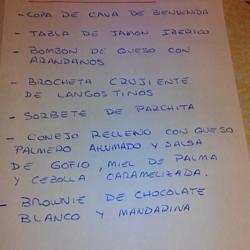 - COPA DE CAVA DE BIENVENIDA
- TABLA DE JAMON IBERICO
- BOMBON DE QUESO CON
ARANDANOS
- BROCHETA CRUJIENTE
DE LANGOSTINOS
- SORBETE DE PARCHITA
- CONEJO RELLENO CON QUESO
PALMERO AHUMADO Y SALSA
DE GOFIO, MIEL DE PALMA
Y CEBOLLA CARAMELIZADA.
- BROWNIE DE CHOCOLATE
BLANCO Y MANDARINA